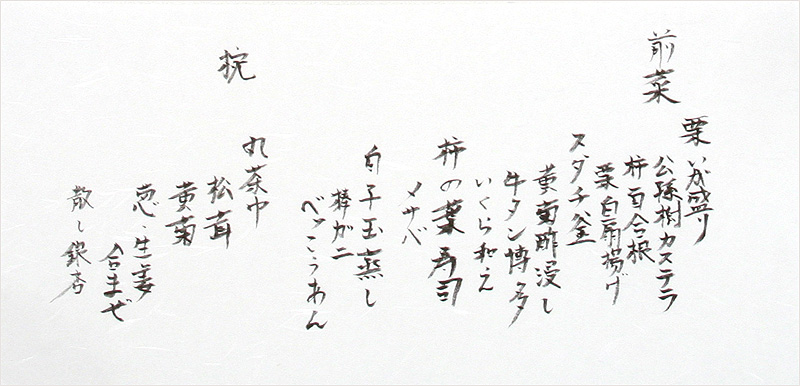 前菜
栗いが盛り
公孫樹カステラ
柿百合根
白扇揚げ
スダチ釜
黄菊酢浸し
牛タン博多
いくら和え
柿の葉寿司
〆サバ
白子玉蒸し
棒ガニ
ベッこうあん
椀
丸茶巾
松茸
黄菊
葱・生姜
合まぜ
散し銀杏